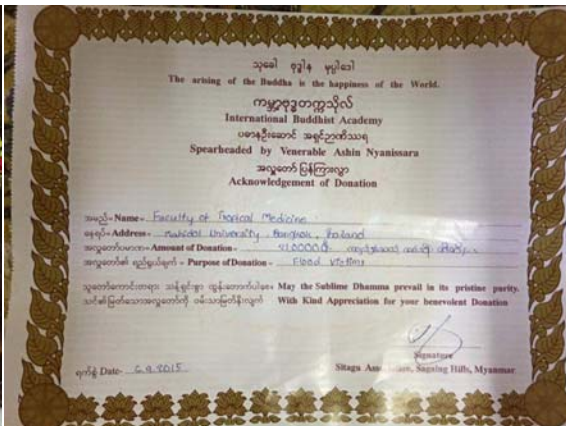 သုခေါ ဗုဒ္ဓါန မုပ္ပါဒေါ
The arising of the Buddha is the happiness of the World.
ကမ္ဘာ့ဗုဒ္ဓတက္ကသိုလ်
International Buddhist Academy
ပဓာနဦးဆောင် အရှင်ဉာဏိဿရ
Spearheaded by Venerable Ashin Nyanissara
အလှူတော် ပြန်ကြားလွှာ
Acknowledgement of Donation
အမည် - Name - Faculty of Tropical Medicine
နေရပ် - Address - Mahidol University, Bangkok, Thailand
အလှူတော်ပမာဏ - Amount of Donation -
အလှူတော်၏ ရည်ရွယ်ချက် - Purpose of Donation - Flood Victims
သူတော်ကောင်းတရား သန့်ရှင်းစွာ ထွန်းတောက်ပါစေ။ May the Sublime Dhamma prevail in its pristine purity.
သင်၏မြတ်သောအလှူတော်ကို ဝမ်းသာမြတ်နိုးလျက် With Kind Appreciation for your benevolent Donation
Signature
ရက်စွဲ Date - 6.9.2015 Sitagu Association, Sagaing Hills, Myanmar